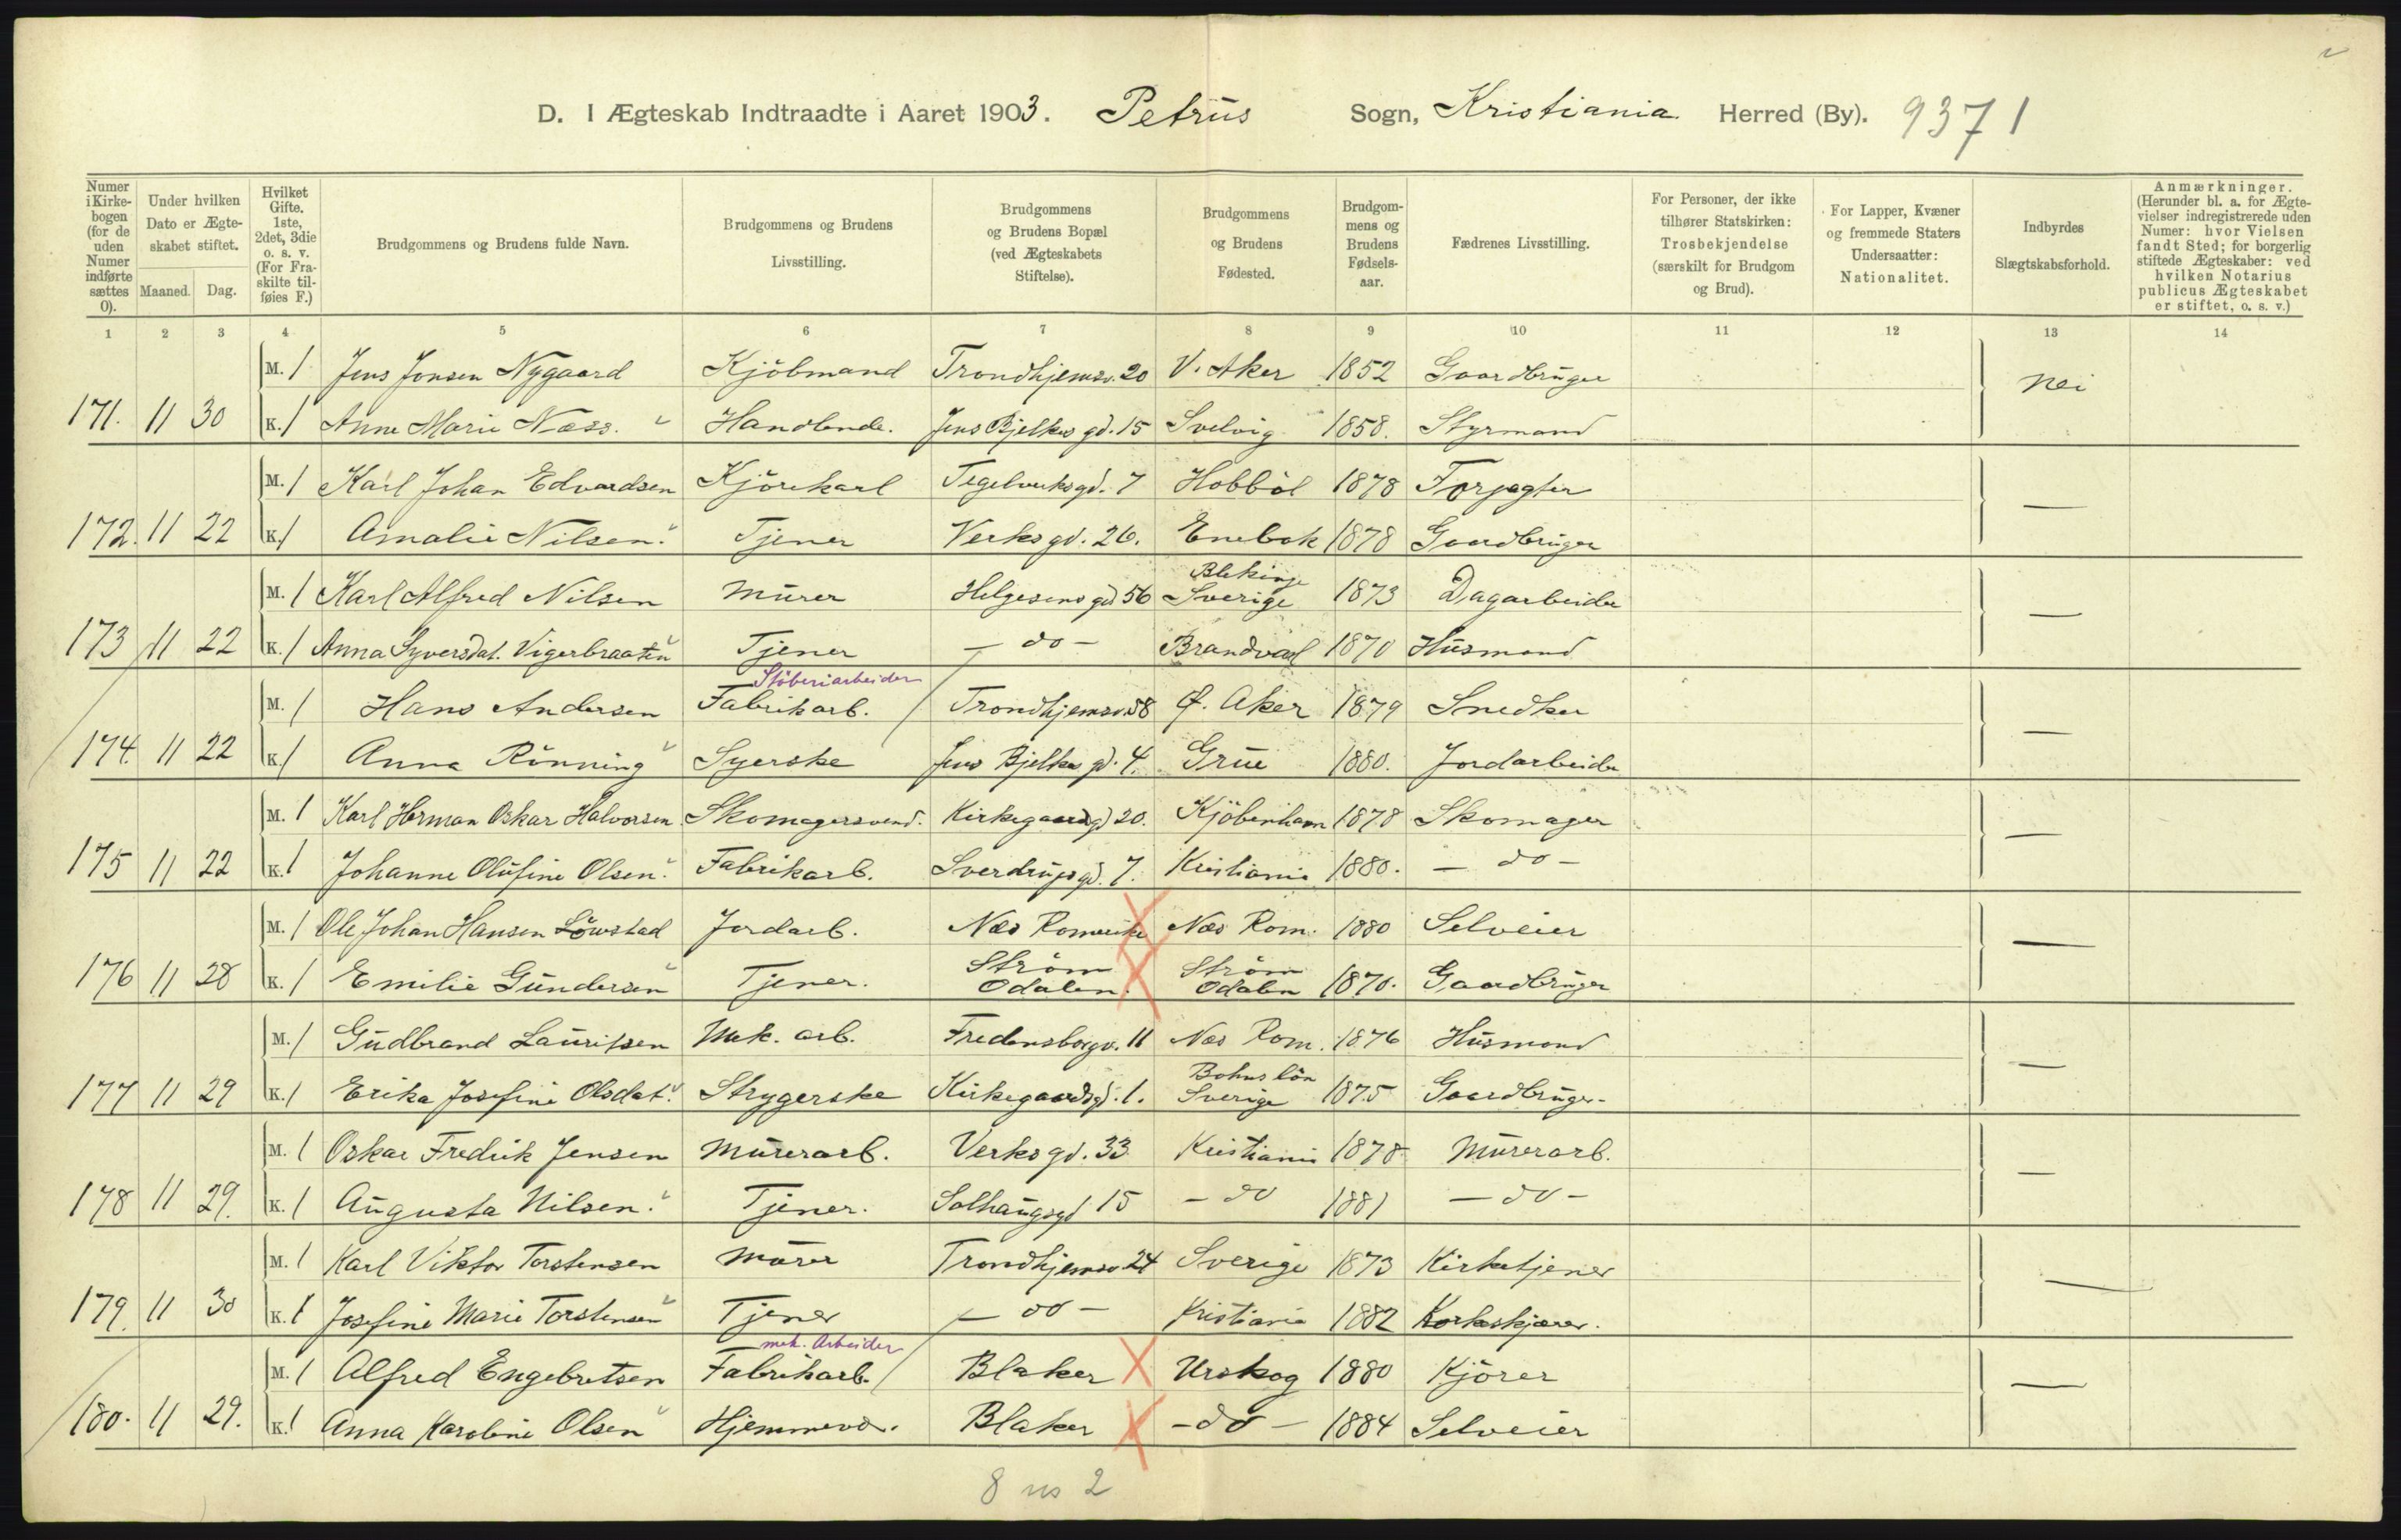 D. I Ægteskab Indtraadte i Aaret 1903. Petrus Sogn, Kristiania Herred (By). 9371
Numer i Kirkebogen (for de uden Numer indførte sættes 0).
Under hvilken Dato er Ægteskabet stiftet.
Maaned. Dag.
Hvilket Gifte. 1ste, 2det, 3die o. s. v. (For Fraskilte tilføies F.)
Brudgommens og Brudens fulde Navn.
Brudgommens og Brudens Livsstilling.
Brudgommens og Brudens Bopæl (ved Ægteskabets Stiftelse).
Brudgommens og Brudens Fødested.
Brudgommens og Brudens Fødselsaar.
Fædrenes Livsstilling.
For Personer, der ikke tilhører Statskirken: Trosbekjendelse (særskilt for Brudgom og Brud).
For Lapper, Kvæner og fremmede Staters Undersaatter: Nationalitet.
Indbyrdes Slægtskabsforhold.
Anmærkninger. (Herunder bl. a. for Ægtevielser indregistrerede uden Numer: hvor Vielsen fandt Sted; for borgerlig stiftede Ægteskaber: ved hvilken Notarius publicus Ægteskabet er stiftet, o. s. v.)
1 2 3 4 5 6 7 8 9 10 11 12 13 14
M. 1 Jens Jonsen Nygaard Kjöbmand Trondhjemsv. 20 V. Aker 1852 Gaardbruger nei
171. 11 30 K. 1 Anne Marie Næss. Handlende. Jens Bjelkes gd. 15 Svelvig 1858. Styrmand
M. 1 Karl Johan Edvardsen Kjörekarl Tegelverksgd. 7 Hobböl 1878 Forpagter —
172. 11 22 K. 1 Amalie Nilsen. Tjener Verksgd. 26. Enebak 1878 Gaardbruger
M. 1 Karl Alfred Nilsen Murer Helgesens gd 56 Blekinge Sverige 1873 Dagarbeider —
173 11 22 K. 1 Anna Syversdat. Vigerbraaten Tjener — do — Brandval 1870 Husmand
Stöberiarbeider
M. 1 Hans Andersen Fabrikarb. Trondhjemsv. 58 Ø. Aker 1879 Snedker —
174. 11 22 K. 1 Anna Rönning Syerske Jens Bjelkes gd. 4. Grue 1880. Jordarbeider
M. 1 Karl Herman Oskar Halvorsen Skomagersvend. Kirkegaardsgd 20. Kjöbenhavn 1878 Skomager —
175 11 22 K. 1 Johanne Olufine Olsen. Fabrikarb. Sverdrupsgd. 7. Kristiania 1880. — do —
M. 1 Ole Johan Hansen Löwstad Jordarb. Næs Romerike Næs Rom. 1880 Selveier —
176 11 28 K. 1 Emilie Gundersen Tjener. Ström Odalen. Ström Odalen 1870. Gaardbruger
M. 1 Gudbrand Lauritsen Mek. arb. Fredensborgv. 11 Næs Rom. 1876 Husmand —
177 11 29 K. 1 Erika Josefine Olsdat. Strygerske Kirkegaardsgd. 1. Bohuslän Sverige 1875 Gaardbruger
M. 1 Oskar Fredrik Jensen Murerarb. Verksgd. 33 Kristiania 1878 Murerarb. —
178 11 29. K. 1 Augusta Nilsen. Tjener. Solhaugsgd 15 — do 1881 — do —
M. 1 Karl Viktor Torstensen Murer Trondhjemsv 24 Sverige 1873 Kirketjener —
179. 11 30 K. 1 Josefine Marie Torstensen Tjener — do — Kristiania 1882 Korkskjærer.
mek. Arbeider
M. 1 Alfred Engebretsen Fabrikarb. Blaker Urskog 1880 Kjörer —
180. 11 29. K. 1 Anna Karoline Olsen Hjemmevær. Blaker — do — 1884 Selveier
8 ns 2